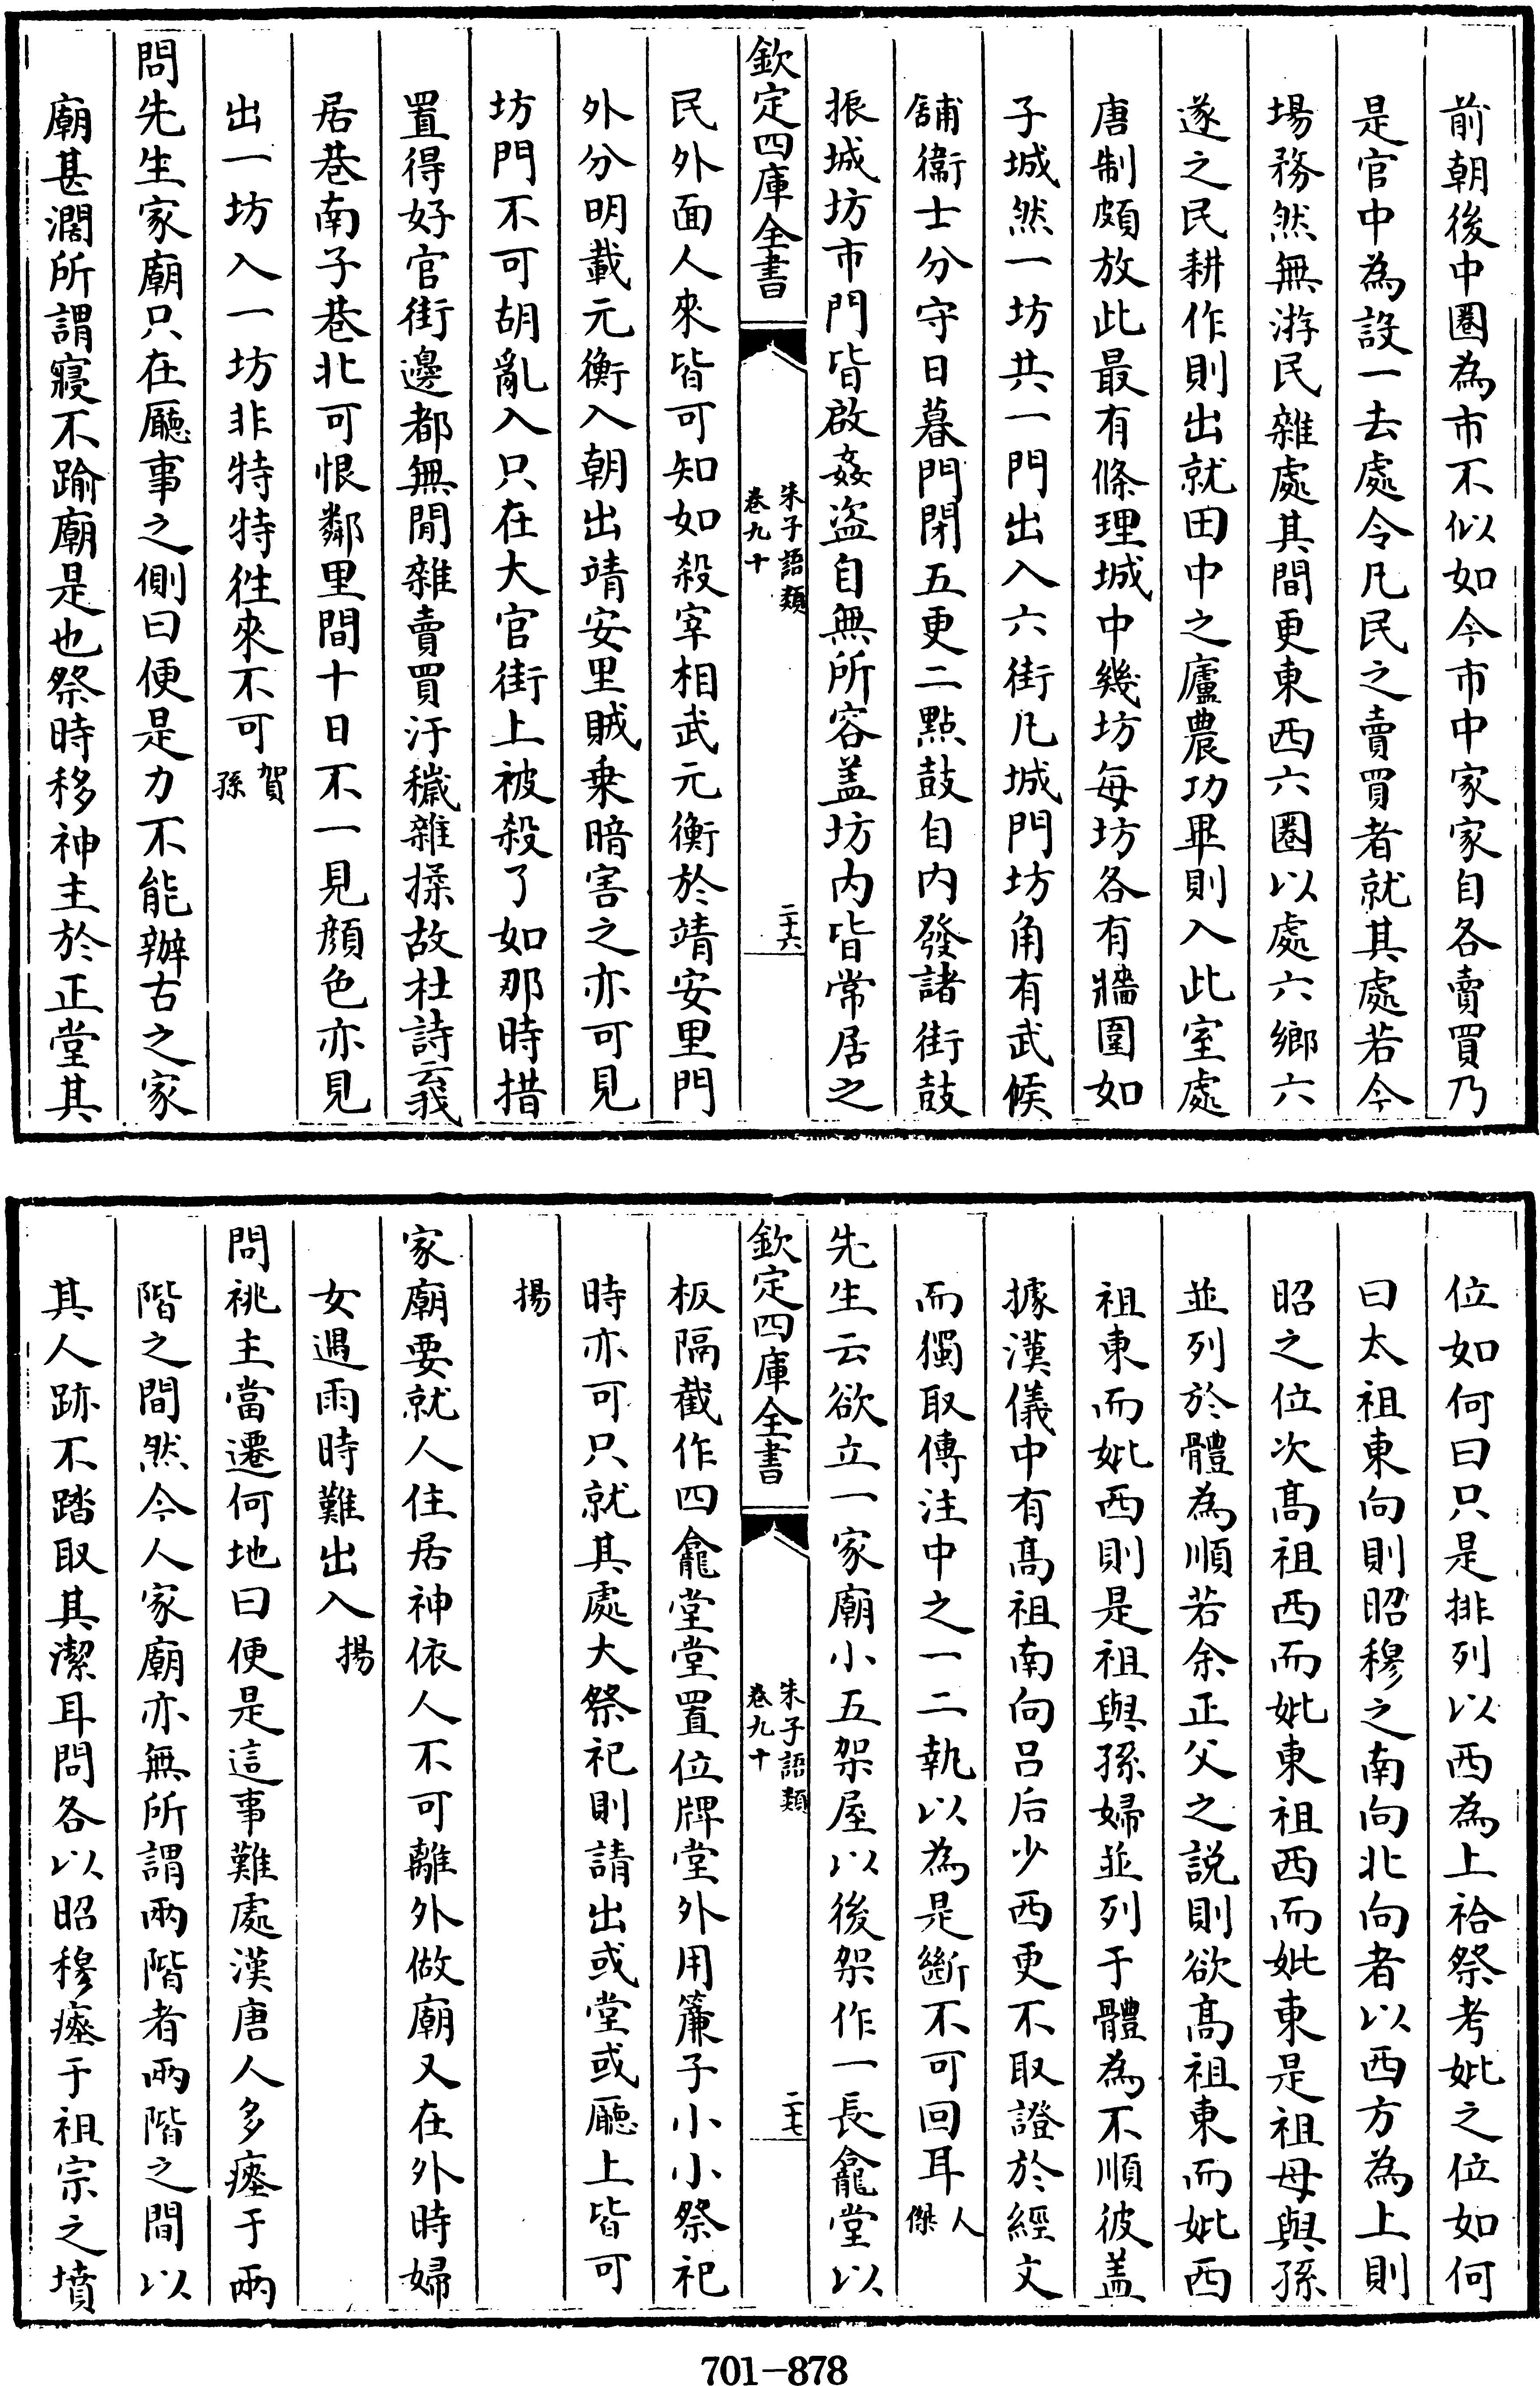 前朝後中圈為市不似如今市中家家自各賣買乃
是官中為設一去處令凡民之賣買者就其處若今
場務然無游民雜處其間更東西六圈以處六鄉六
遂之民耕作則出就田中之廬農功畢則入此室處
唐制頗放此最有條理城中幾坊每坊各有牆圍如
子城然一坊共一門出入六街凡城門坊角有武候
鋪衛士分守日暮門閉五更二點鼓自内發諸街鼓
振城坊市門皆啟姦盜自無所容盖坊内皆常居之
欽定四庫全書 朱子語類 卷九十 二十六
民外面人來皆可知如殺宰相武元衡於靖安里門
外分明載元衡入朝出靖安里賊乗暗害之亦可見
坊門不可胡亂入只在大官街上被殺了如那時措
置得好官街邊都無閒雜賣買汙穢雜揉故杜詩云我
居巷南子巷北可恨鄰里間十日不一見顔色亦見
出一坊入一坊非特特徃來不可 賀孫
問先生家廟只在廳事之側曰便是力不能辦古之家
廟甚濶所謂寢不踰廟是也祭時移神主於正堂其
位如何曰只是排列以西為上祫祭考妣之位如何
曰太祖東向則昭穆之南向北向者以西方為上則
昭之位次髙祖西而妣東祖西而妣東是祖母與孫
並列於體為順若余正父之説則欲髙祖東而妣西
祖東而妣西則是祖與孫婦並列于體為不順彼盖
據漢儀中有髙祖南向吕后少西更不取證於經文
而獨取傳注中之一二執以為是斷不可回耳 人傑
先生云欲立一家廟小五架屋以後架作一長龕堂以
欽定四庫全書 朱子語類 卷九十 二十七
板隔截作四龕堂堂置位牌堂外用簾子小小祭祀
時亦可只就其處大祭祀則請出或堂或廳上皆可
揚
家廟要就人住居神依人不可離外做廟又在外時婦
女遇雨時難出入 揚
問祧主當遷何地曰便是這事難處漢唐人多瘞于兩
階之間然今人家廟亦無所謂兩階者兩階之間以
其人跡不踏取其潔耳問各以昭穆瘞于祖宗之墳
701-878